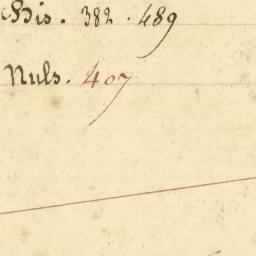 Bis. 382. 489
Nuls. 407